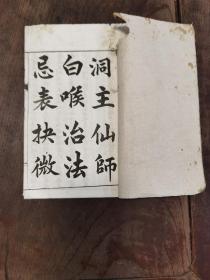 洞主仙師
白喉治法
忌表抉微